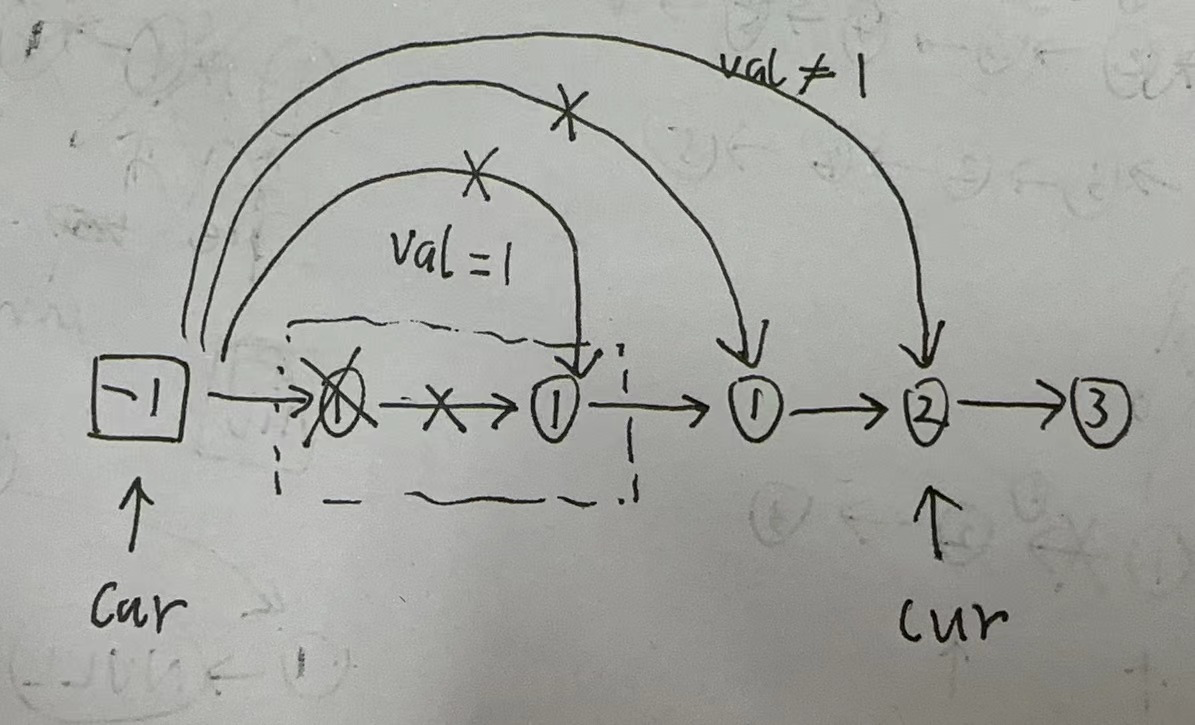 val ≠ 1
val = 1
-1 → 1 → 1 → 1 → 2 → 3
Cur cur